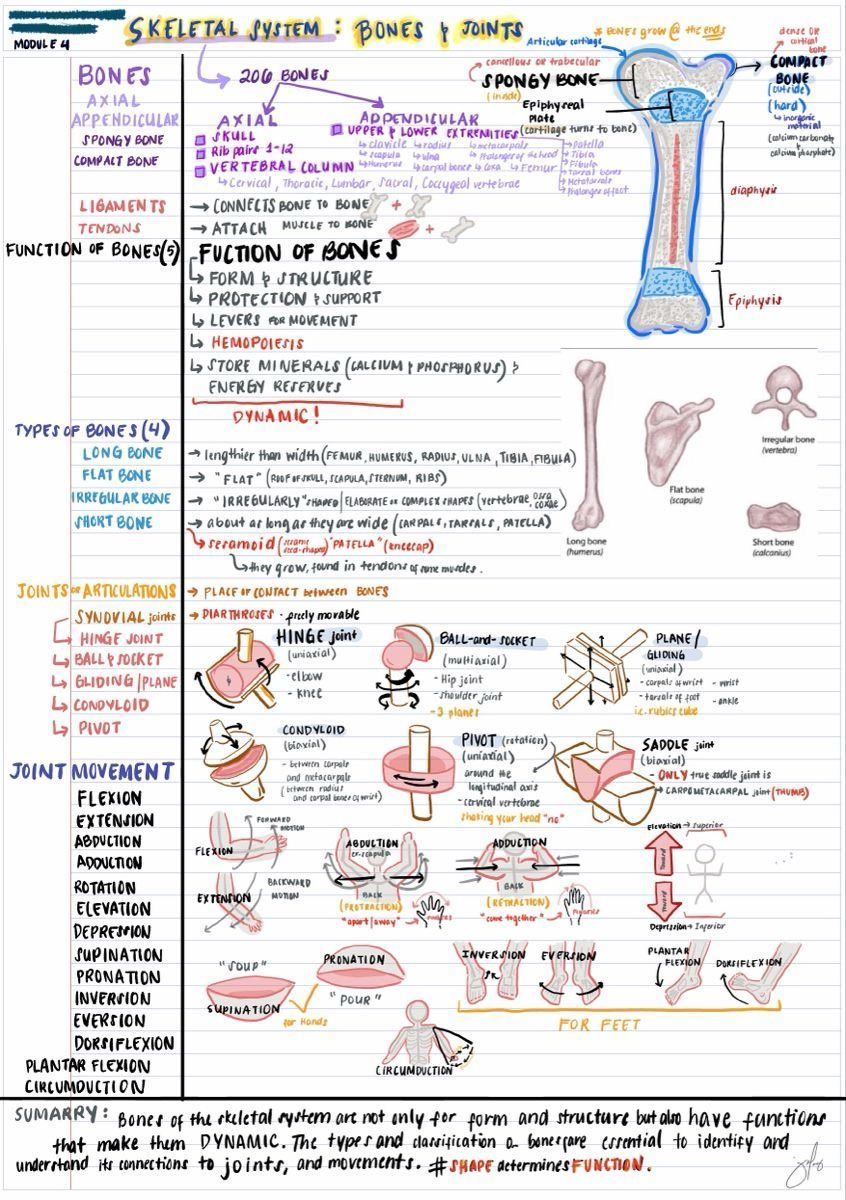 SKELETAL SYSTEM : BONES & JOINTS
MODULE 4
# BONES grow @ the ends
Articular cartilage
dense OR
cortical
bone
cancellous or trabecular
SPONGY BONE
(inside)
COMPACT
BONE
(outside)
(hard)
↳ inorganic
material
(calcium carbonate
calcium phosphate)
Epiphyseal
Plate
(cartilage turns to bone)
diaphysis
Epiphysis
BONES
AXIAL
APPENDICULAR
SPONGY BONE
COMPACT BONE
206 BONES
AXIAL
SKULL
Rib pairs 1-12
VERTEBRAL COLUMN
↳ Cervical, Thoracic, Lumbar, Sacral, Coccygeal vertebrae
APPENDICULAR
UPPER & LOWER EXTREMITIES
↳ clavicle
↳ scapula
↳ Humerus
↳ radius
↳ ulna
↳ carpal bones
↳ metacarpals
↳ coxa
↳ Femur
↳ Patella
↳ Tibia
↳ Fibula
↳ Tarsal bones
↳ Metatarsals
LIGAMENTS
→ CONNECTS BONE TO BONE
+
TENDONS
→ ATTACH MUSCLE TO BONE
+
FUNCTION OF BONES (5)
FUCTION OF BONES
↳ FORM & STRUCTURE
↳ PROTECTION & SUPPORT
↳ LEVERS FOR MOVEMENT
↳ HEMOPOIESIS
↳ STORE MINERALS (CALCIUM & PHOSPHORUS) &
ENERGY RESERVES
DYNAMIC!
Long bone
(humerus)
Flat bone
(scapula)
Irregular bone
(vertebra)
Short bone
(calcanius)
TYPES OF BONES (4)
LONG BONE
→ lengthier than width (FEMUR, HUMERUS, RADIUS, ULNA, TIBIA, FIBULA)
FLAT BONE
→ "FLAT" (ROOF OF SKULL, SCAPULA, STERNUM, RIBS)
IRREGULAR BONE
→ "IRREGULARLY" SHAPED / ELABORATE OR COMPLEX SHAPES (vertebrae, ossa coxae)
SHORT BONE
→ about as long as they are wide (CARPALS, TARSALS, PATELLA)
"PATELLA" (kneecap)
↳ they grow, found in tendons of some muscles.
JOINTS or ARTICULATIONS
→ PLACE OF CONTACT between BONES
SYNOVIAL joints
→ DIARTHROSES - freely movable
↳ HINGE JOINT
↳ BALL & SOCKET
↳ GLIDING / PLANE
↳ CONDYLOID
↳ PIVOT
HINGE joint
(uniaxial)
- elbow
- knee
BALL-and-SOCKET
(multiaxial)
- Hip joint
- shoulder joint
- 3 planes
PLANE/
GLIDING
(uniaxial)
- carpals of wrist - wrist
- tarsals of foot - ankle
i.e. rubics cube
CONDYLOID
(biaxial)
- between carpals
and metacarpals
(between radius
and carpal bones of wrist)
PIVOT (rotation)
(uniaxial)
around the
longitudinal axis
- cervical vertebrae
shaking your head "no"
SADDLE joint
(biaxial)
- ONLY true saddle joint is
→ CARPOMETACARPAL joint (THUMB)
JOINT MOVEMENT
FLEXION
EXTENSION
ABDUCTION
ADDUCTION
ROTATION
ELEVATION
DEPRESSION
SUPINATION
PRONATION
INVERSION
EVERSION
DORSIFLEXION
PLANTAR FLEXION
CIRCUMDUCTION
FLEXION
FORWARD
MOTION
EXTENSION
BACKWARD
MOTION
ABDUCTION
ex-scapula
BACK
(PROTRACTION)
"apart/away"
ADDUCTION
BACK
(RETRACTION)
"come together"
Elevation → Superior
Toward
Toward
Depression → Inferior
"SOUP"
SUPINATION
for Hands
PRONATION
"POUR"
INVERSION
EVERSION
PLANTAR
FLEXION
DORSIFLEXION
FOR FEET
CIRCUMDUCTION
SUMARRY: Bones of the skeletal system are not only for form and structure but also have functions
that make them DYNAMIC. The types and classification bones are essential to identify and
understand its connections to joints, and movements. #SHAPE determines FUNCTION.